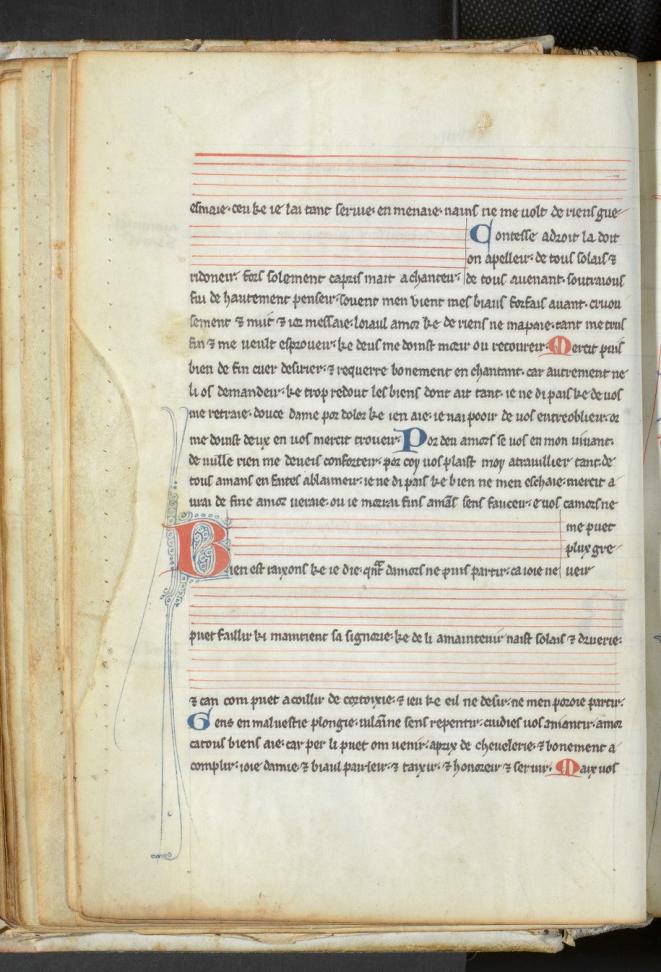 esmaie· ceu ke ie lai tant seruie· en menaie· nains ne me volt de riens gue
Contesse adroit la doit
on apelleir· de tous solais ⁊
ridoneir· fors solement capris mait a chanteir· de tous auenant· soutraious
fui de hautement penseir· souent men vient mes biaus forfais auant· cruou
sement ⁊ nuit ⁊ ior messaie· loiaul amor ke de riens ne mapaie· tant me truis
fin ⁊ me veult esproueir· ke deus me doinst mœir ou recoureir· Mercit puis
bien de fin cuer desirier· ⁊ requerre bonement en chantant· car autrement ne
li os demandeir· ke trop redout les biens dont ait tant· ie ne di pais ke de vos
me retraie· douce dame por dolor ke ien aie· ie nai pooir de vos entreoblieir· or
me doinst deux en vos mercit troueir· Por deu amors se vos en mon viuant·
de nulle rien me deueis conforteir· por coy vos plaist moy atrauillier tant· de
tous amans en faites ablaimeir· ie ne di pais ke bien ne men eschaie· mercit a
urai de fine amor veraie· ou ie morrai fins amās sens fauceir· e vos camors ne
me puet
plux gre
Bien est raixons ke ie die· qnt damors ne puis partir· ca ioie ne ueir
puet faillir ki maintient sa signorie· ke de li amaintenir naist solais ⁊ druerie·
⁊ can com puet acoillir de cortoixie· ⁊ ieu ke eil ne desir· ne men poroie partir·
Gens en maluestie plongie· uilainne sens repentir· cuidies vos aniantir· amor
ca tous biens aie· car per li puet om uenir· a prix de cheuelerie· ⁊ bonement a
complir· ioie damie· ⁊ biaul parleir· ⁊ taixir· ⁊ honoreir ⁊ seruir· Maix vos